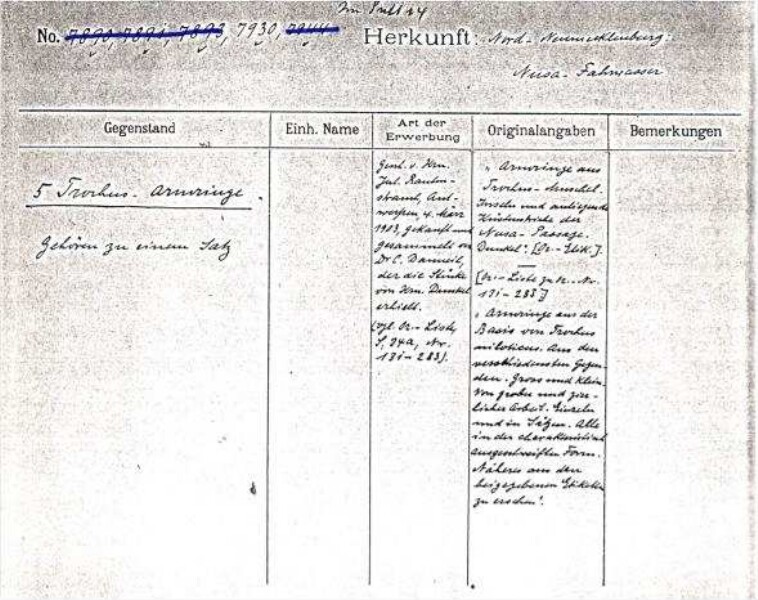 Im Pult 24
No. 7890, 7891, 7893, 7930, 7944 Herkunft: Nord-Neumecklenburg:
Nusa-Fahrwasser
Gegenstand Einh. Name Art der Erwerbung Originalangaben Bemerkungen
5 Trochus-Armringe.
Gehören zu einem Satz
Gesch. v. Hrn.
Jul. Rauten-
strauch, Ant-
werpen, 4. März
1903, gekauft und
gesammelt von
Dr C. Danneil,
der die Stücke
von Hrn. Dunkel
erhielt.
(vgl. Or.-Liste,
S. 34a, No.
131-283).
"Armringe aus
Trochus-Muschel.
Inseln und anliegende
Küstenstriche der
Nusa-Passage.
Dunkel". [Or.-Etik.].
[Or.-Liste zu Or. No.
131-283]
"Armringe aus der
Basis von Trochus
niloticus. Aus den
verschiedensten Gegen-
den. Gross und klein.
Von grober und zier-
licher Arbeit. Einzeln
und in Sätzen. Alle
in der charakteristisch
ausgeschweiften Form.
Näheres aus den
beigegebenen Etiketten
zu ersehen".